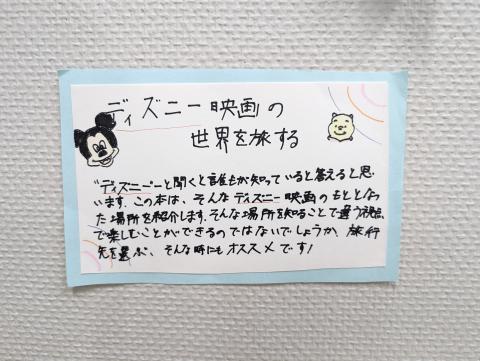 ディズニー映画の
世界を旅する
"ディズニー"と聞くと誰もが知っていると答えると思
います。この本は、そんなディズニー映画のもととなっ
た場所を紹介します。そんな場所を知ることで違う視点
で楽しむことができるのではないでしょうか。旅行
先を選ぶ、そんな時にもオススメです!